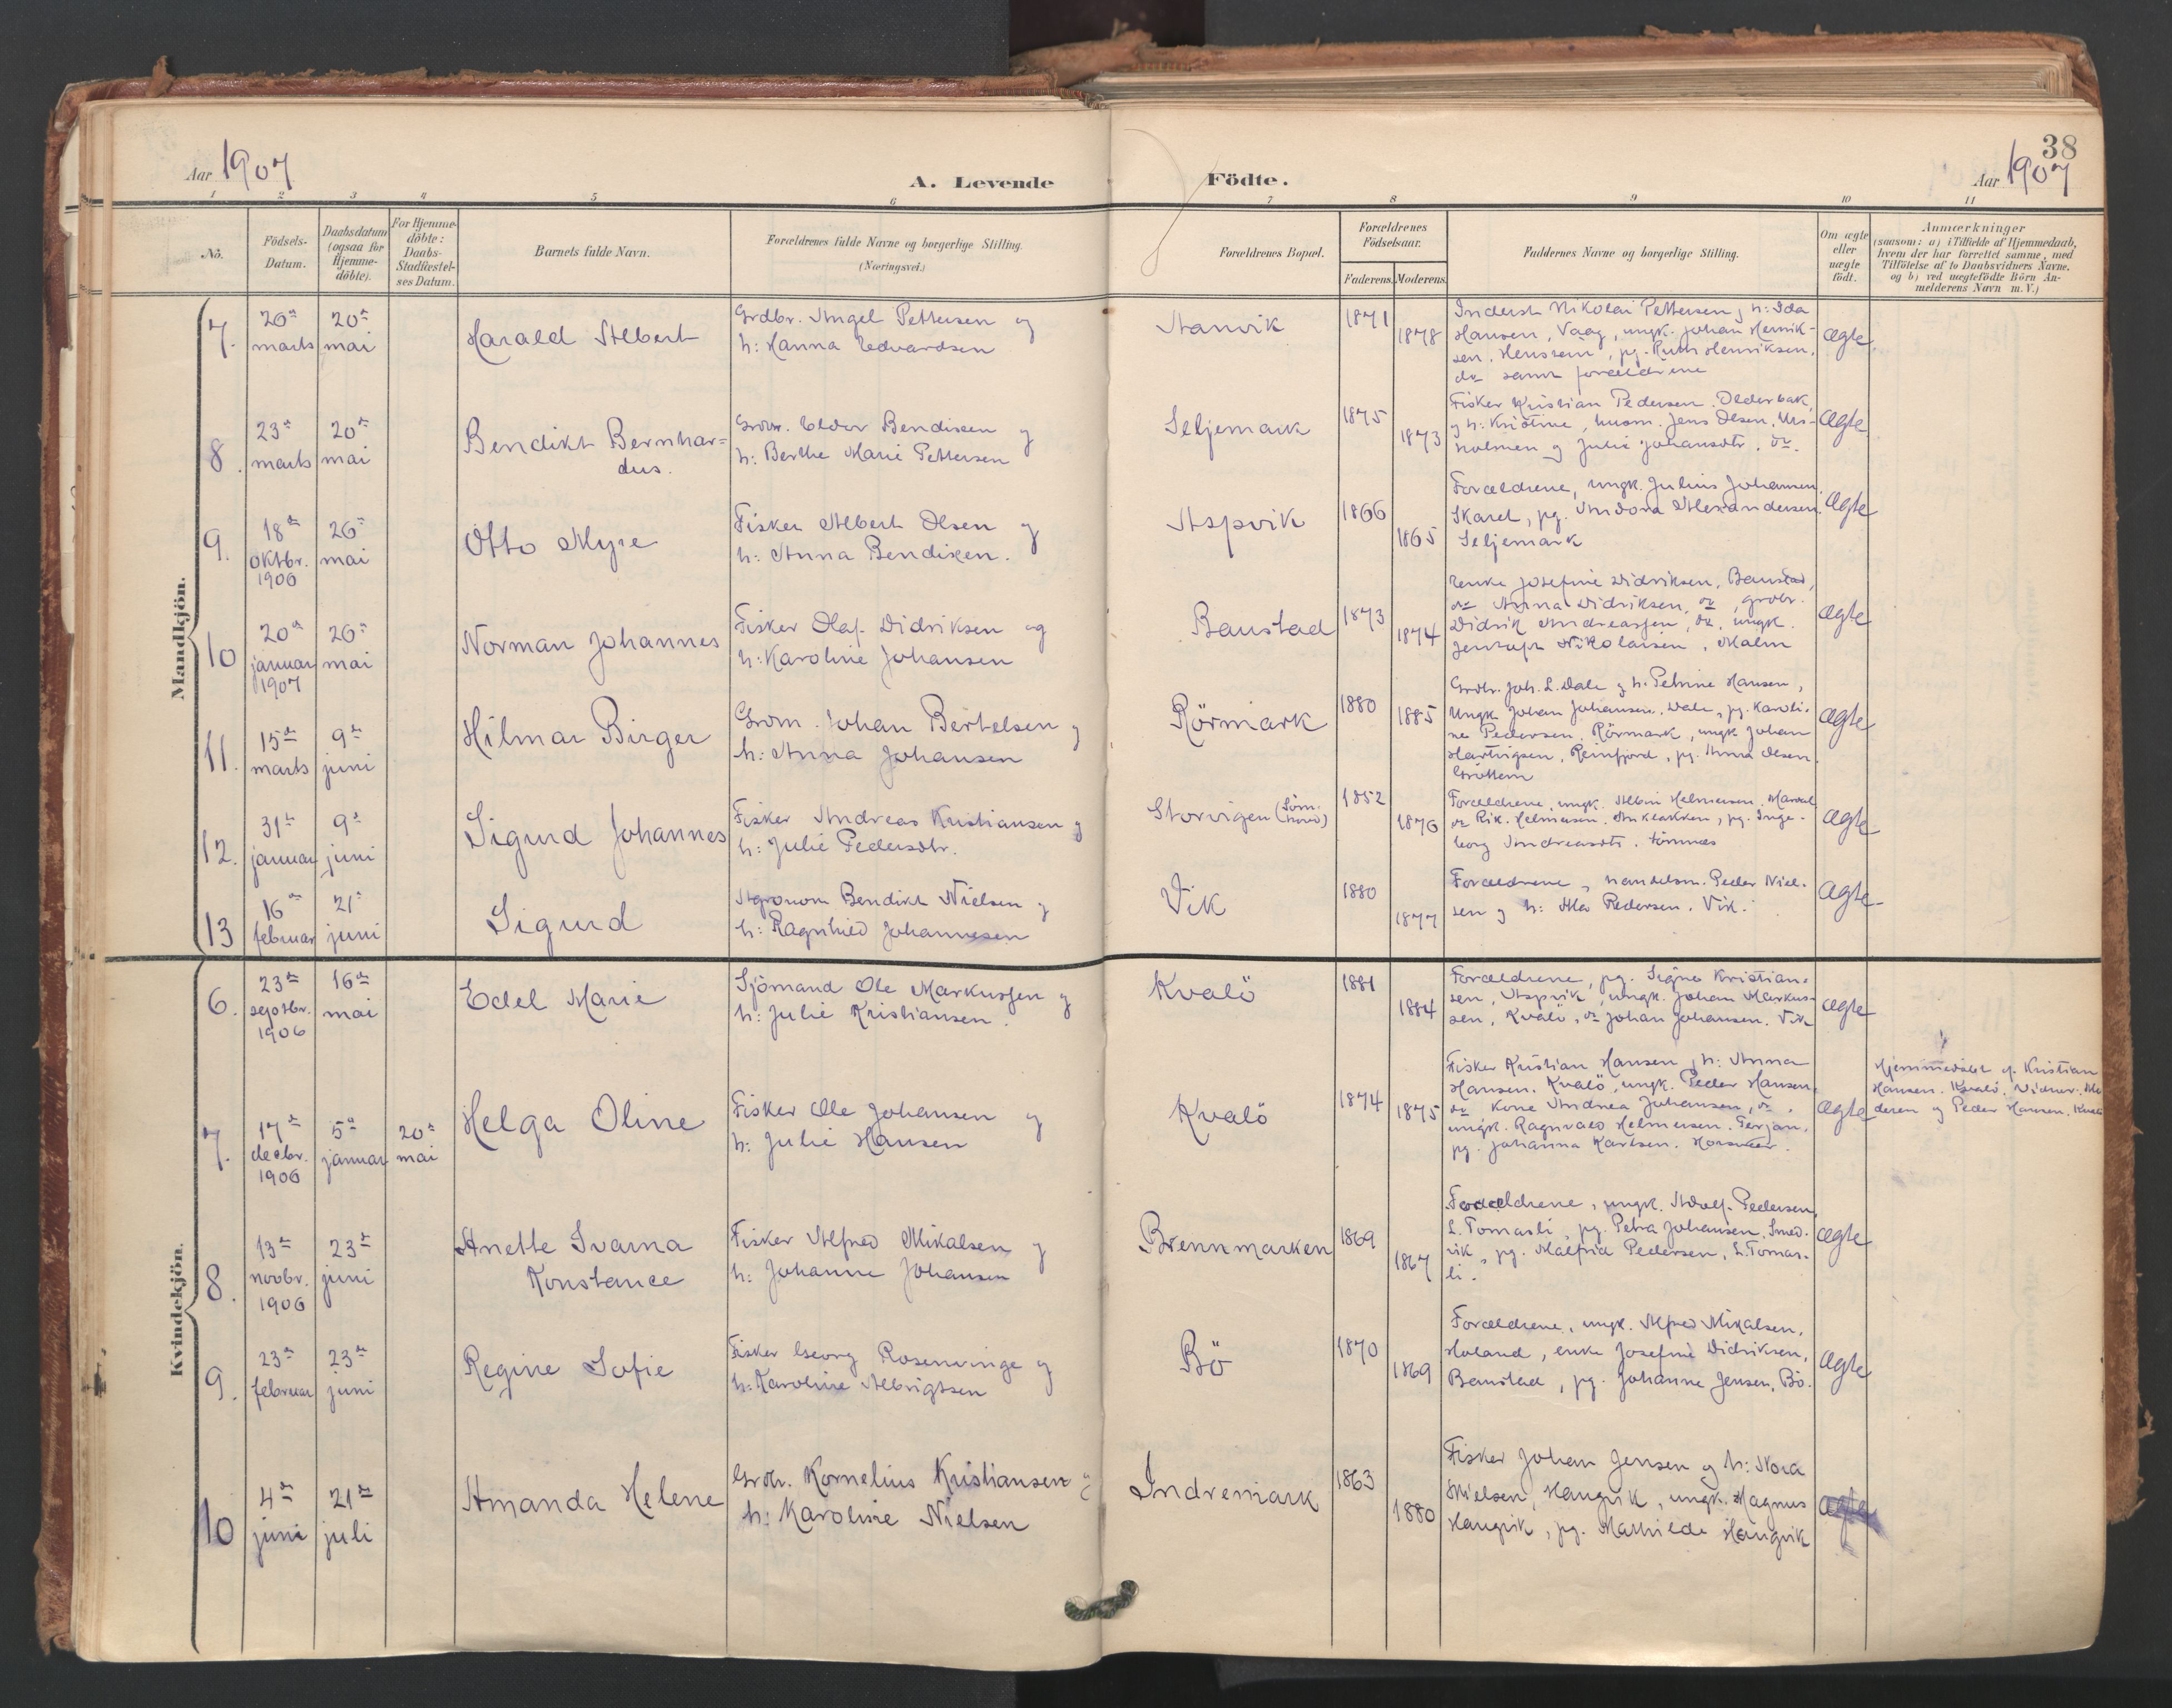 Aar 1907
A. Levende Födte.
38
Aar 1907
1 2 3 4 5 6 7 8 9 10 11
No.
Födsels-Datum.
Daabsdatum (ogsaa for Hjemme-döbte).
For Hjemme-döbte: Daabs-Stadfæstel-ses Datum.
Barnets fulde Navn.
Forældrenes fulde Navne og borgerlige Stilling. (Næringsvei.)
Forældrenes Bopæl.
Forældrenes Födselsaar.
Faderens. Moderens.
Faddernes Navne og borgerlige Stilling.
Om ægte eller uægte födt.
Anmærkninger
(saasom: a) i Tilfælde af Hjemmedaab, hvem der har forrettet samme, med Tilföielse af to Daabsvidners Navne, og b) ved uægtefödte Börn An-melderens Navn m. V.)
Mandkjön.
7. 26de marts 20de mai
Harald Albert
Grdbr. Angel Pettersen og
h: Hanna Edvardsen
Stanvik
1871 1878
Inderst Nikolai Pettersen, h: Ida
Hansen, Vaag, ungk. Johan Henrik-
sen, pg. Ruth Henriksen,
do samt forældrene
ægte
8. 23de marts 20de mai
Bendikt Bernhar=
dus.
Bendixen og
h: Berthe Marie Pettersen
Seljemark
1875 1873
Fisker Kristian Pedersen Olderbak,
og h: Kristine, husm. Jens Olsen,
holmen og Julie Johansdtr. do.
ægte
9. 18de oktbr. 1906 26de mai
Otto Myre
Fisker Albert Olsen og
h: Anna Bendixen.
Aspvik
1866 1865
Forældrene, ungk. Julius Johansen,
Skaret, pg. Andora Alexandersen
Seljemark
ægte
10 20de januar 1907 26de mai
Norman Johannes
Fisker Olaf Didriksen og
h: Karoline Johansen
Baustad
1873 1874
Enke Josefine Didriksen, Baustad,
do Anna Didriksen, do, grdbr.
Didrik Andreassen, do, ungk.
Nikolaisen, Malm
ægte
11. 15de marts 9de juni
Hilmar Birger
Grdm. Johan Bertelsen og
h: Anna Johansen
Rörmark
1880 1885
Grdbr. Joh. L. Dale og h: Petrine Hansen,
Ungk Johan Johansen, Dale, pg. Karoli-
ne Pedersen, Rörmark, ungk Johan
Hartvigsen, Reinfjord, pg. Anna Olsen
Gröttem
ægte
12. 31te januar 9de juni
Sigurd Johannes
Fisker Andreas Kristiansen og
h: Julie Pedersdtr.
Storvigen
1852 1876
Forældrene, ungk. Albin Helmersen,
do Rik. Helmersen, pg. Inge-
borg Andreasdtr.
ægte
13 16de februar 21de juni
Sigurd
Agronom Bendikt Nielsen og
h: Ragnhild Johannesen
Vik
1880 1877
Forældrene, handelsm. Peder Niel-
sen og h: Pedersen, Vik.
ægte
Kvindekjön.
6. 23de septbr. 1906 16de mai
Edel Marie
Sjömand Ole Markussen og
h: Julie Kristiansen.
Kvalö
1881 1884
Forældrene, pg. Signe Kristian=
sen, Aspvik, ungk. Johan Markus-
sen, Kvalö, do Johan Johansen, Vik
ægte
7. 17de decbr. 1906 5te januar 20de mai
Helga Oline
Fisker Ole Johansen og
h: Julie Hansen
Kvalö
1874 1875
Fisker Kristian Hansen, h: Anna
Hansen, Kvalö, ungk. Peder Hansen,
do, kone Andrea Johansen, do,
ungk. Ragnvald Helmersen,
pg. Johanna Karlsen, Horsvær.
ægte
Hjemmedöbt af Kristian
Hansen, Kvalö. Vidner: Mo
deren og Peder Hansen, Kvalö
8. 13de novbr. 1906 23de juni
Anette Ivarna
Konstance
Fisker Alfred Mikalsen og
h: Johanne Johansen
Brennmarken
1869 1867
Forældrene, ungk. Adolf Pedersen,
L. Tomasli, pg. Petra Johansen, Smed-
vik, pg. Malfrid Pedersen, L. Tomas-
li.
ægte
9. 23de februar 23de juni
Regine Sofie
Fisker Georg Rosenvinge og
h: Karoline Albrigtsen
Bö
1870 1869
Forældrene, ungk. Alfred Mikalsen,
Holand, enke Josefine Didriksen,
Baustad, pg. Johanne Jensen, Bö.
ægte
10 4de juni 21de juli
Amanda Helene
Grdbr. Kornelius Kristiansen og
h: Karoline Nielsen
Indremark
1863 1880
Fisker Johan Jensen og h: Nora
Nielsen, Haugvik, ungk. Magnus
Haugvik, pg. Mathilde Haugvik
ægte